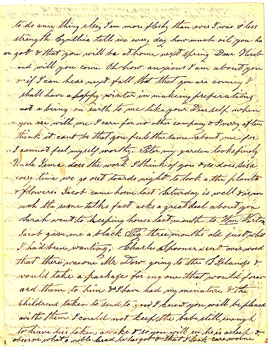 to do any thing else, I am more fleshy than ever I was & less
strength Cynthia tell me every day how much oil you have
got & that you will be at home next spring Dear Husb
and will you come Oh how anxious I am about you
& if I can hear next fall that that you are coming I
shall have a happy winter in making preparations
not a being on earth to me like your Dear self when
you are with me I care for no other company & I very often
think it cant be that you feel the same about me for
I cannot feel myself worthy Peter, my garden looks finely
Uncle does the work I think of you & so does
every time we go out towards night to look at the plants
& flowers Jacob came home last Saturday is well & given
up the talks fast asks a great deal about you
Sarah went to keeping house last month to
Jacob gave me a black three months old just what
I had been wanting, Charles Spooner sent over word
that there was one Mr Dow going to the S Islands &
would take a package for any one that would forw
ard them to him & I have had my miniature & the
childrens taken to send to you I know you will be pleased
with them I could not keep the babe still enough
to have his taken awake & so you will see he is asleep &
observe what a noble head he has got & that I look care worn